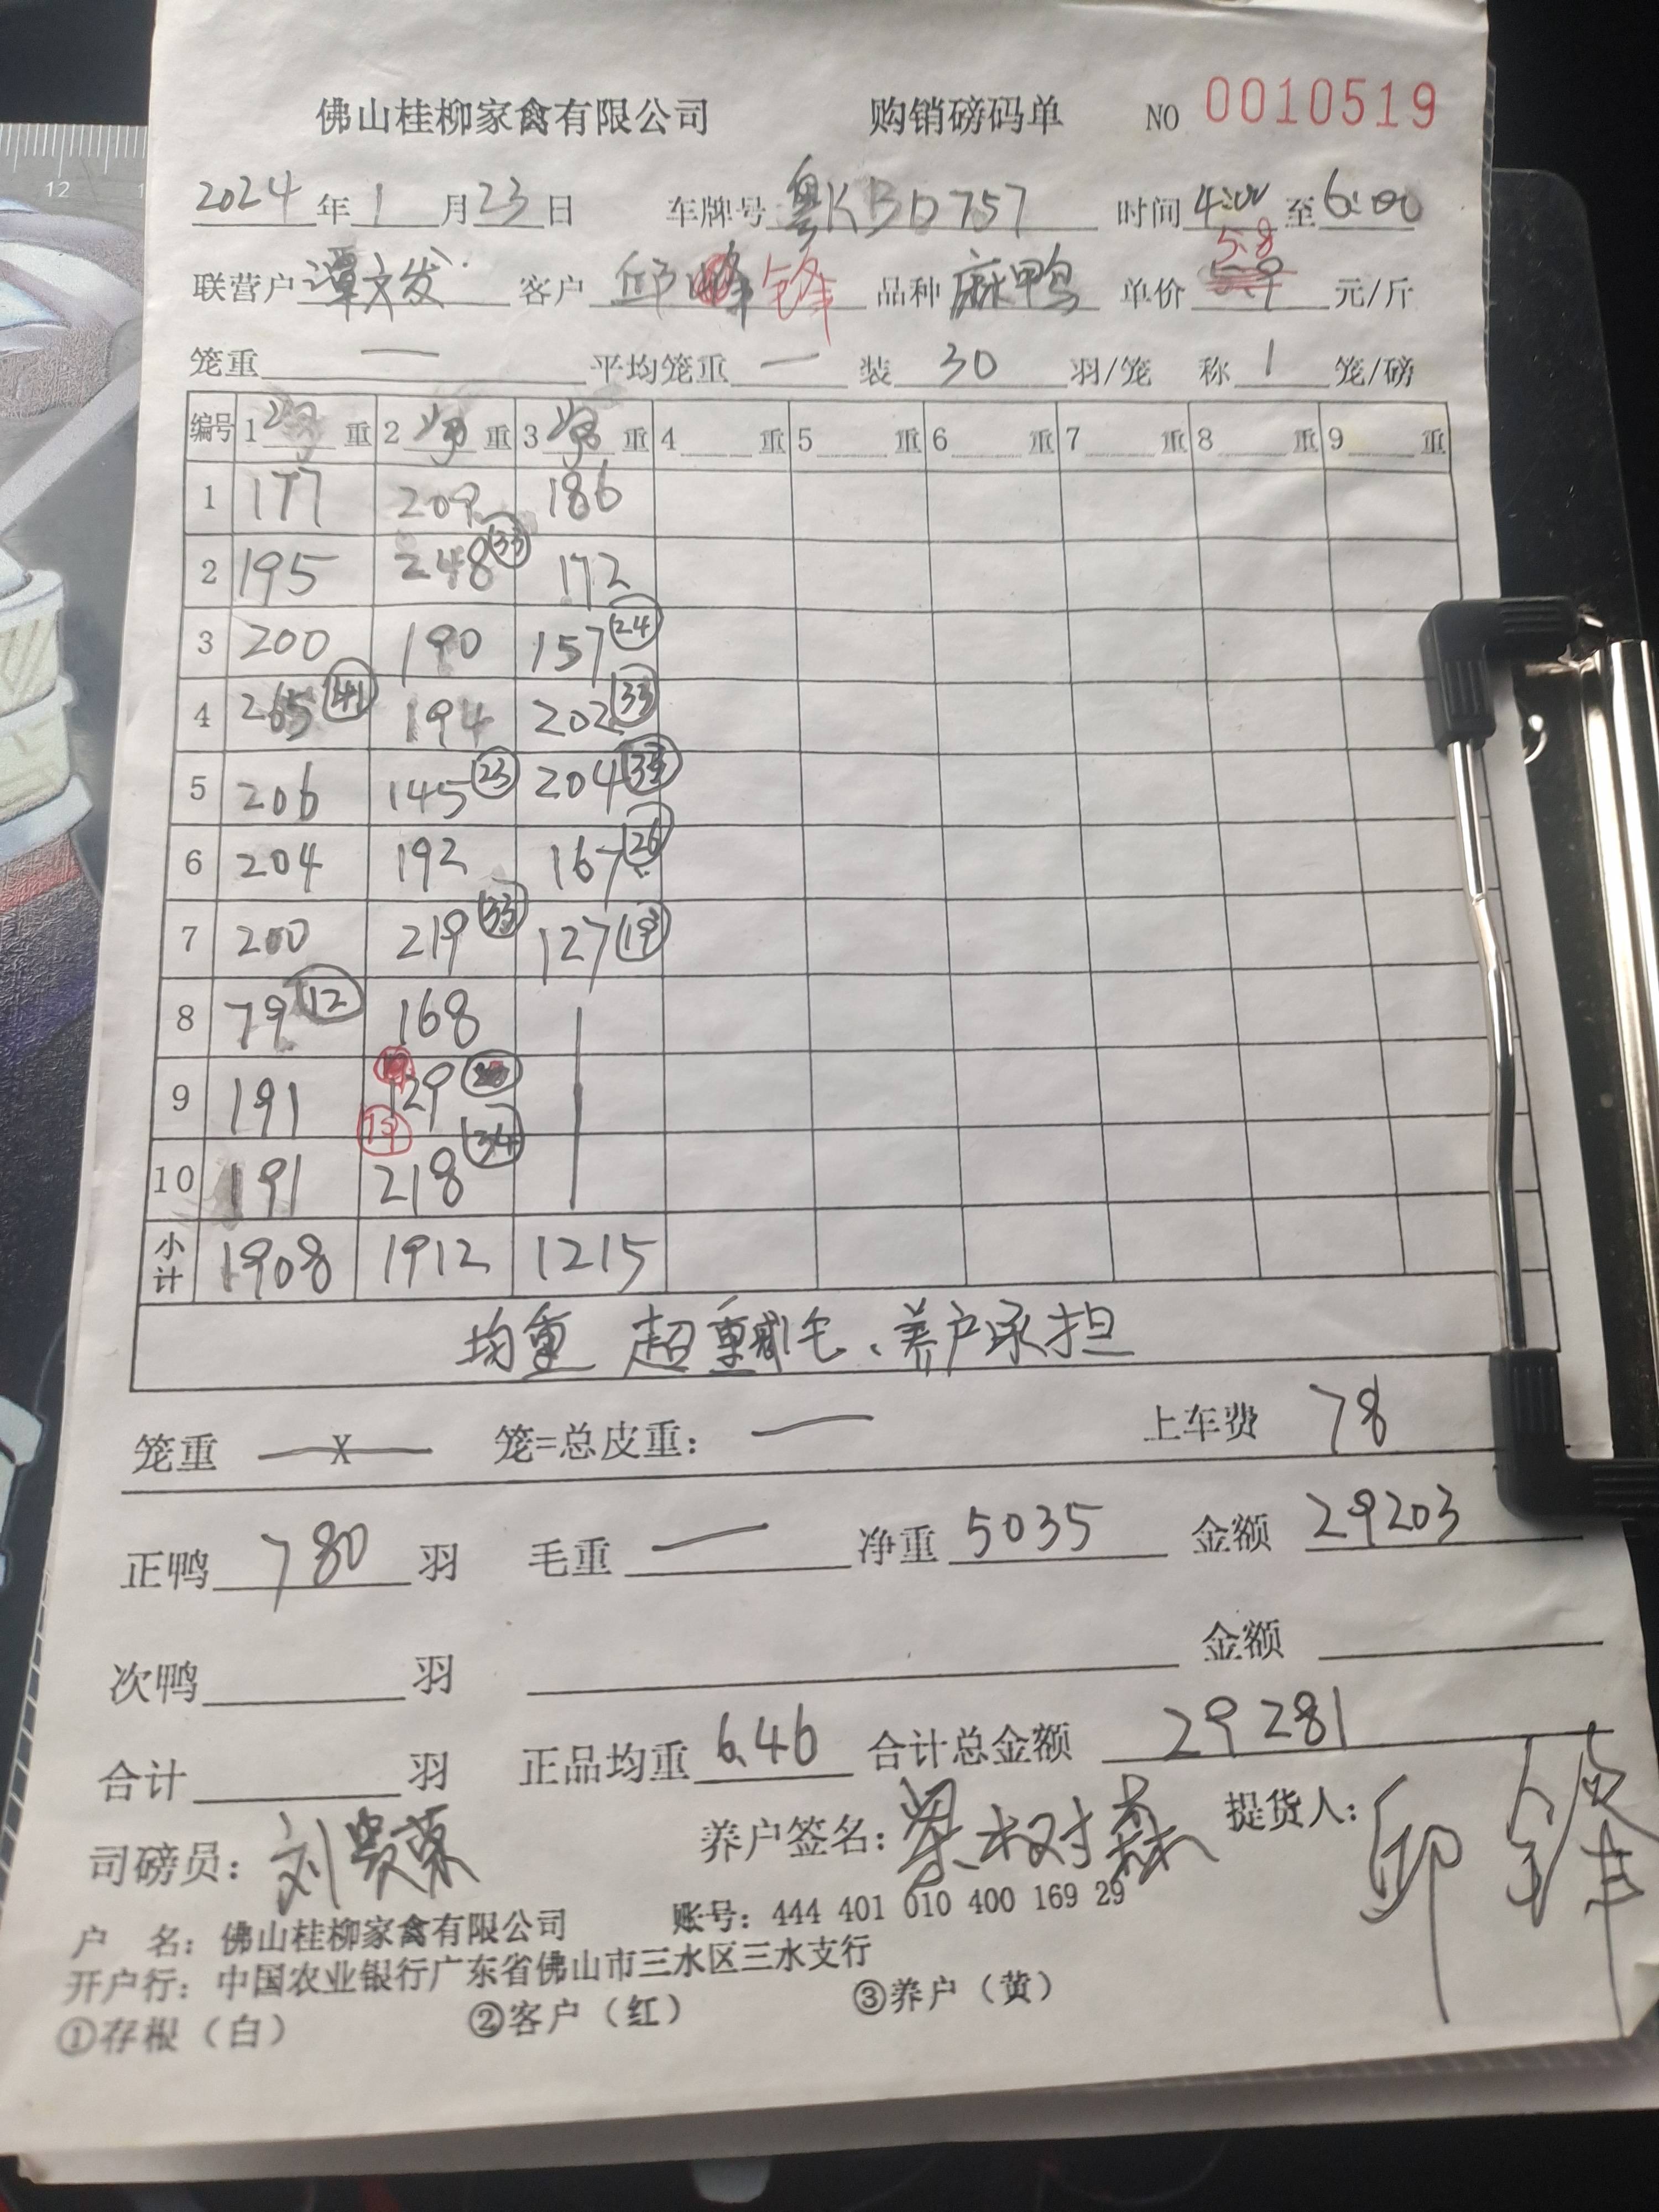 佛山桂柳家禽有限公司 购销磅码单 NO 0010519
2024年1月23日 车牌号粤KBD757 时间4:00至6:00
联营户谭文发 客户邱锋 品种麻鸭 单价5.8元/斤
笼重一 平均笼重一 装30羽/笼 称1笼/磅
编号 1 重 2 重 3 重 4 重 5 重 6 重 7 重 8 重 9 重
1 177 209 186
2 195 248 33 172
3 200 190 157 24
4 265 41 194 202 33
5 206 145 23 204
6 204 192 167 26
7 200 219 33 127 19
8 79 12 168
9 191 129 19
10 191 218 34
小计 1908 1912 1215
均重 超重减毛、养户承担
笼重 一x一 笼=总皮重: 一 上车费 78
正鸭 780 羽 毛重 一 净重 5035 金额 29203
次鸭 羽 金额
合计 羽 正品均重 6.46 合计总金额 29281
司磅员: 刘贵荣 养户签名: 梁树森 提货人: 邱锋
户 名: 佛山桂柳家禽有限公司 账号: 444 401 010 400 169 29
开户行: 中国农业银行广东省佛山市三水区三水支行
①存根(白) ②客户(红) ③养户(黄)
12